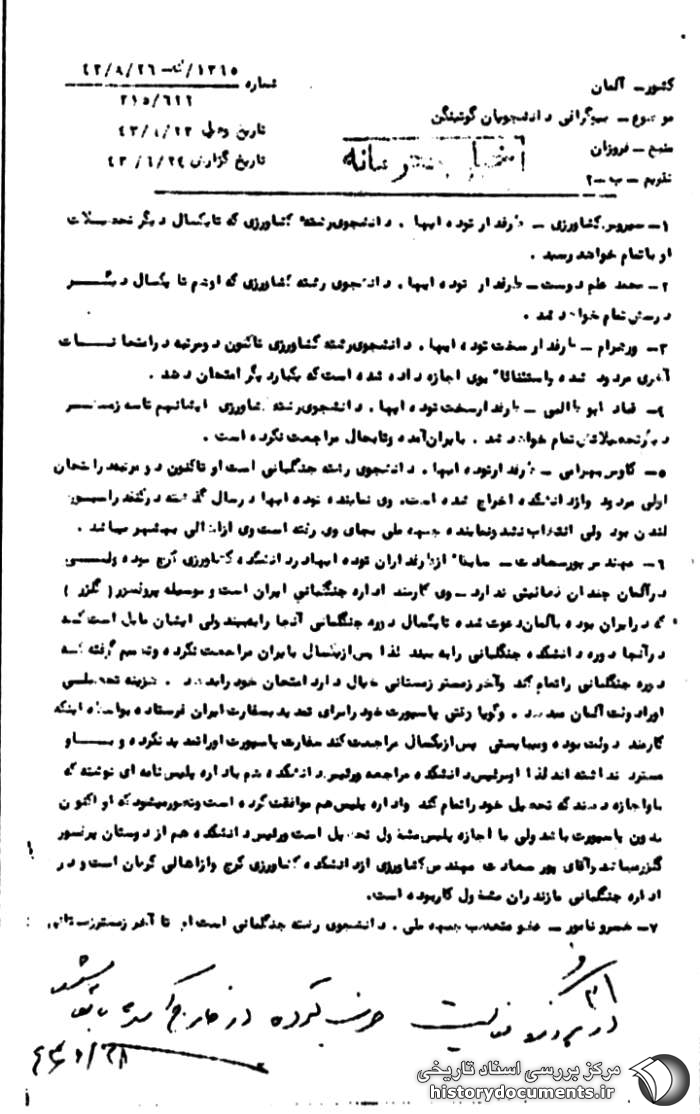 کشور ـ آلمان
شماره ۱۳۱۵/ ۴۳/۸/۲۶
موضوع ـ بیوگرافی دانشجویان گوتینگن
۳۱۵/۶۱۱
منبع ـ فروزان
تاریخ وصول
تقویم ـ ب ـ ۲
تاریخ گزارش
۱ـ سیروس کشاورزی ـ طرفدار توده ایها . دانشجوی رشته کشاورزی که تا یکسال دیگر تحصیلات
او باتمام خواهد رسید .
۲ـ محمد علم دوست ـ طرفدار توده ایها . دانشجوی رشته کشاورزی که او هم تا یکسال دیگر
درسش تمام خواهد شد .
۳ـ ـ طرفدار سخت توده ایها . دانشجوی رشته کشاورزی تاکنون دو مرتبه در امتحانات
آخری مردود شده و استثنائا" بوی اجازه داده شده است که یکبار دیگر امتحان دهد .
۴ـ ـ طرفدار سخت توده ایها . دانشجوی رشته کشاورزی ایشانهم تا سه زمستر
دیگر تحصیلاتش تمام خواهد شد . بایران آمده و تابحال مراجعت نکرده است .
۵ـ کاوس بهرامی ـ طرفدار توده ایها . دانشجوی رشته جنگلبانی است او تاکنون دو مرتبه در امتحان
اولی مردود و از دانشکده اخراج شده است. وی نماینده توده ایها در سال گذشته در کنفدراسیون
لندن بود ولی انتخاب نشد و نماینده جبهه ملی بجای وی رفته است وی از اهالی بهشهر میباشد .
۶ـ مهندس پورسعادت ـ سابقا" از طرفداران توده ایها در دانشکده کشاورزی کرج بوده ولی
در آلمان چندان فعالیتی ندارد ـ وی کارمند اداره جنگلبانی ایران است و بوسیله پروفسور ( گلزر )
که در ایران بوده بآلمان دعوت شده تا یکسال دوره جنگلبانی آنجا را ببیند ولی ایشان مایل است که
در آنجا دوره دانشکده جنگلبانی را ببیند لذا پس از یکسال بایران مراجعت نکرده و تصمیم گرفته که
دوره جنگلبانی را تمام کند و آخر زمستر زمستانی خیال دارد امتحان خود را بدهد . هزینه تحصیلی
او را دولت آلمان میدهد . و گویا وقتی پاسپورت خود را برای تمدید بسفارت ایران فرستاده بواسطه اینکه
کارمند دولت بوده و میبایستی پس از یکسال مراجعت کند سفارت پاسپورت او را تمدید نکرده و باو
مسترد نداشته اند لذا او برئیس دانشکده مراجعه و رئیس دانشکده هم باداره پلیس نامه ای نوشته که
باو اجازه دهند که تحصیل خود را تمام کند و اداره پلیس هم موافقت کرده است و تصور میشود که او اکنون
بدون پاسپورت باشد ولی با اجازه پلیس مشغول تحصیل است و رئیس دانشکده هم از دوستان پرفسور
گلزر میباشد و آقای پورسعادت مهندس کشاورزی از دانشکده کشاورزی کرج و از اهالی کرمان است و در
اداره جنگلبانی مازندران مشغول کار بوده است.
۷ـ خسرو نامور ـ عضو متعصب جبهه ملی . دانشجوی رشته جنگلبانی است او تا آخر زمستر زمستانی
در خارج
مرکز بررسی اسناد تاریخی
historydocuments.ir